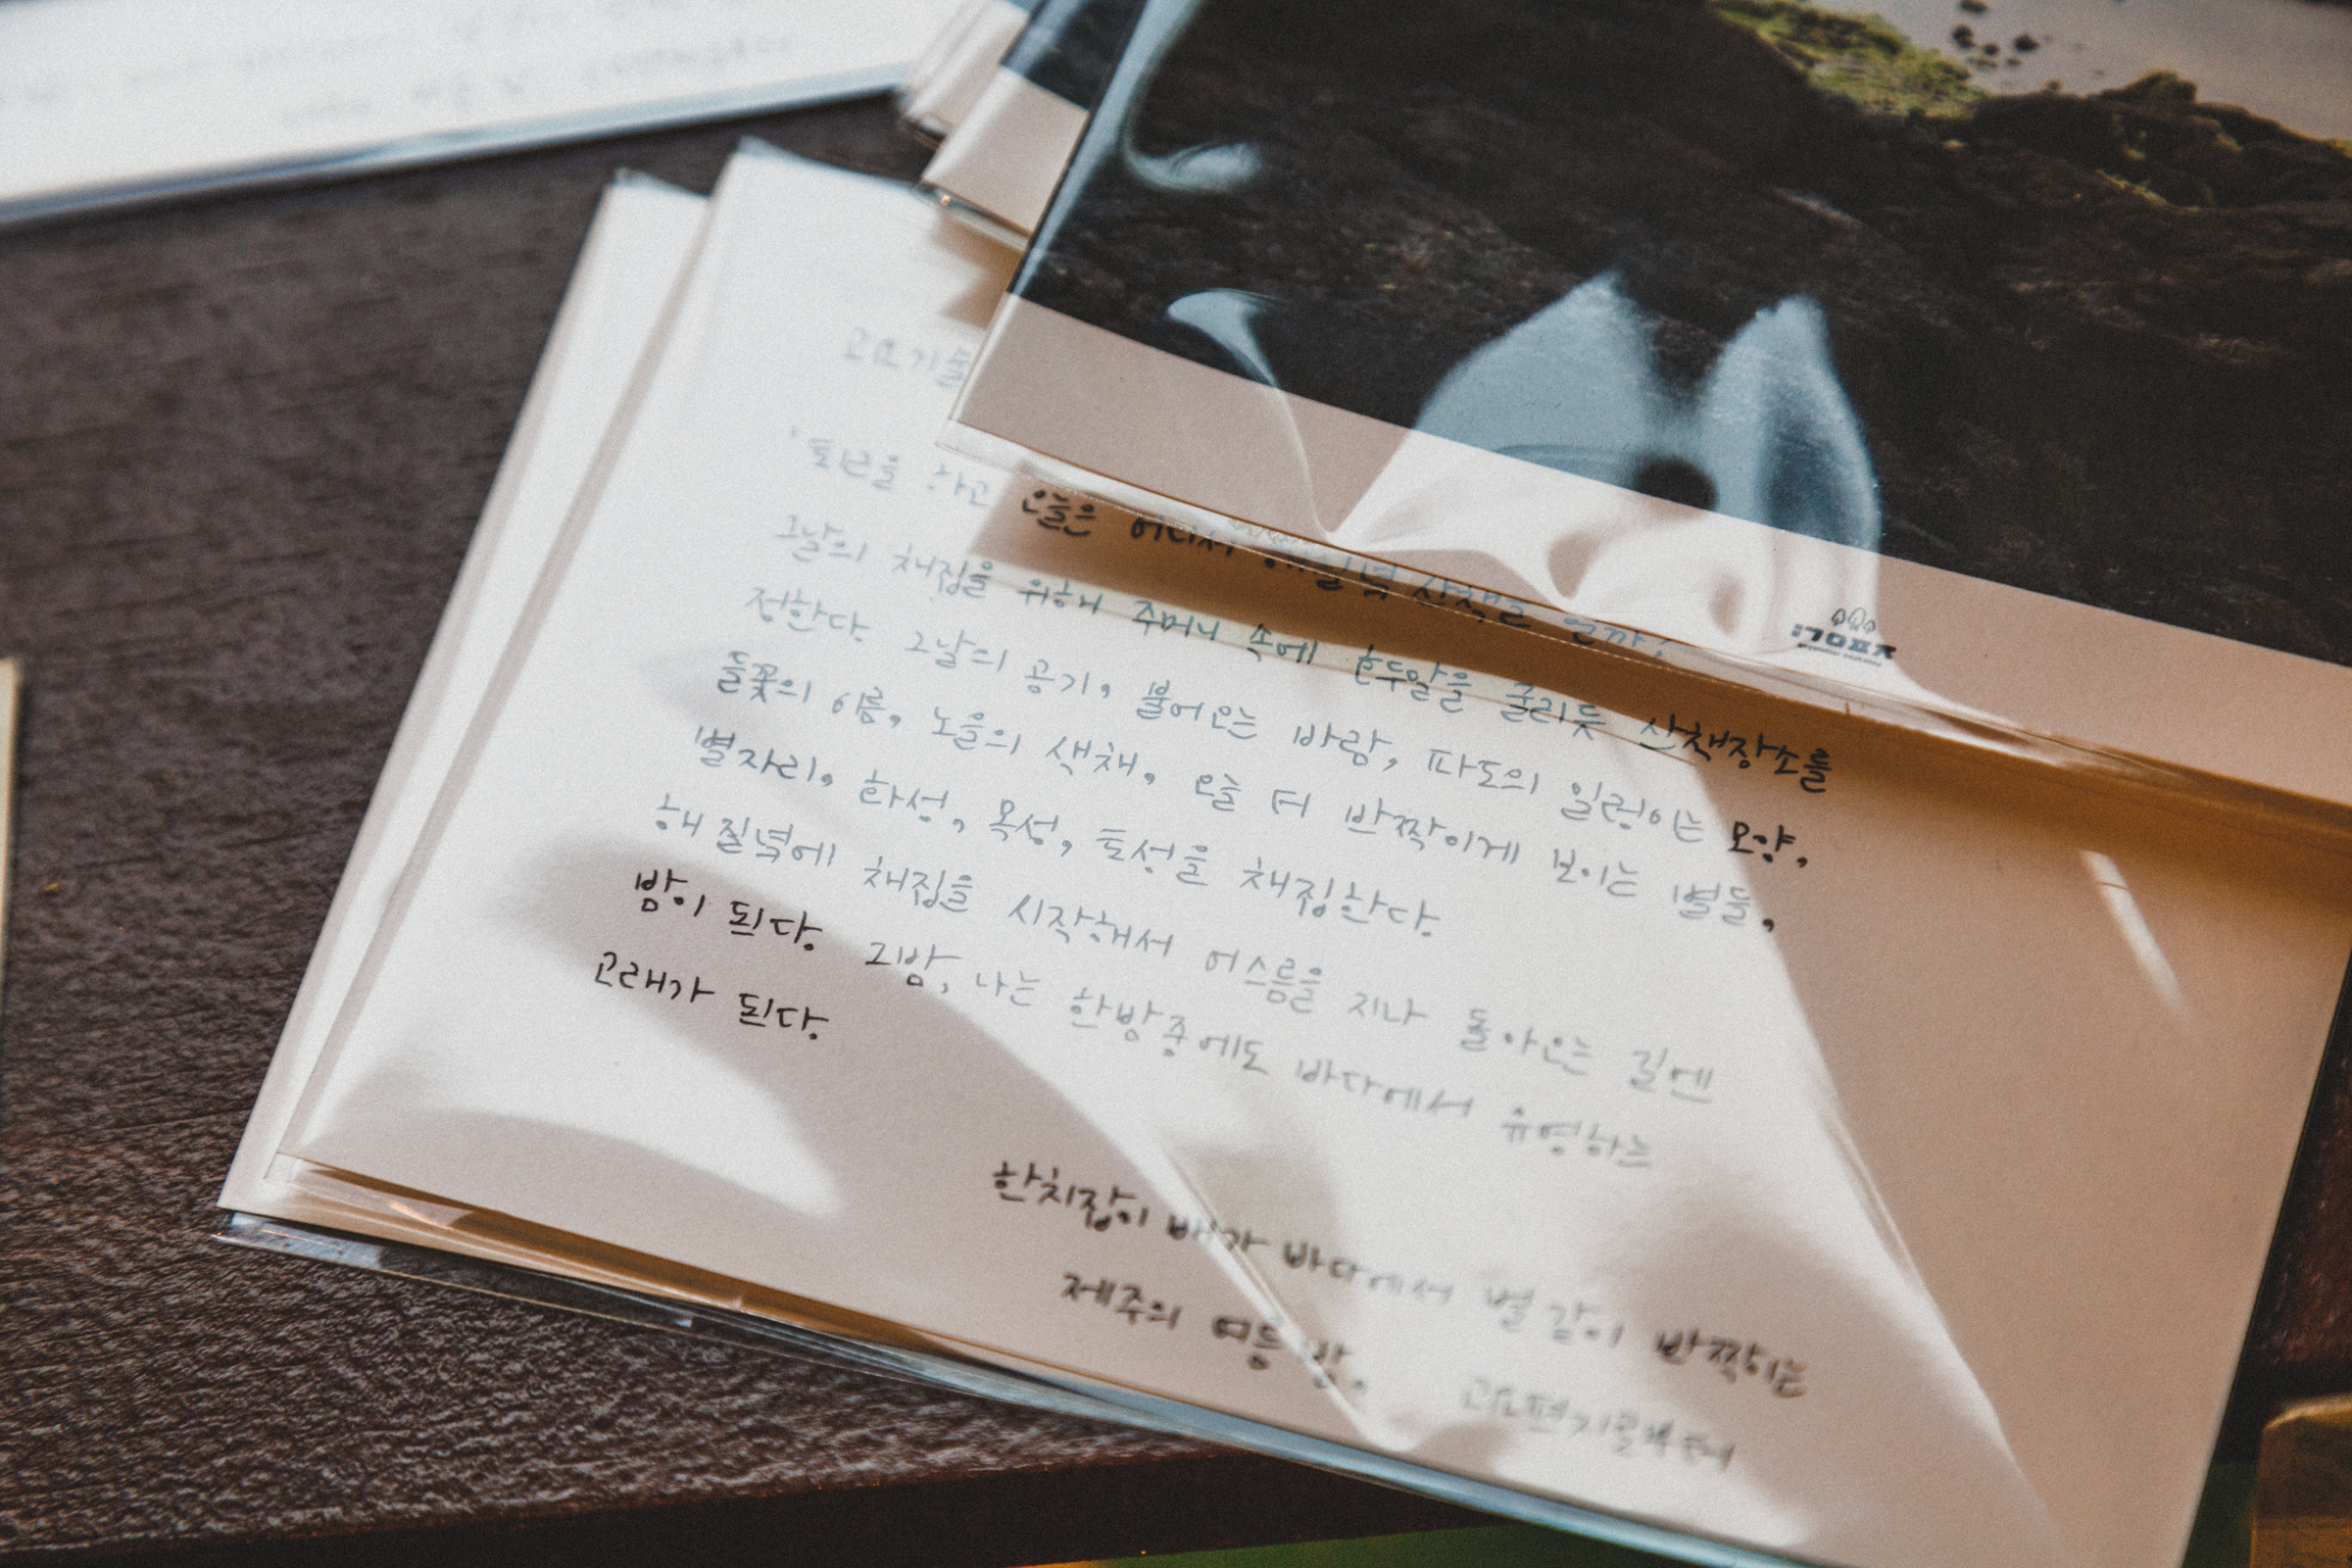 고요기를
출판을 하고 오늘은 어디서 해질녘 산책을
그날의 채집을 위해 주머니 속에 한두알을 굴리듯 산책장소를
정한다. 그날의 공기, 불어오는 바람, 파도의 일렁이는 모양,
들꽃의 이름, 노을의 색채, 오늘 더 반짝이게 보이는 별들,
별자리, 화성, 목성, 토성을 채집한다.
해질녘에 채집을 시작해서 어스름을 지나 돌아오는 길엔
밤이 된다. 그밤, 나는 한밤중에도 바다에서 유영하는
고래가 된다.
한치잡이 배가 바다에서 별 같이 반짝이는
제주의 여름 밤.